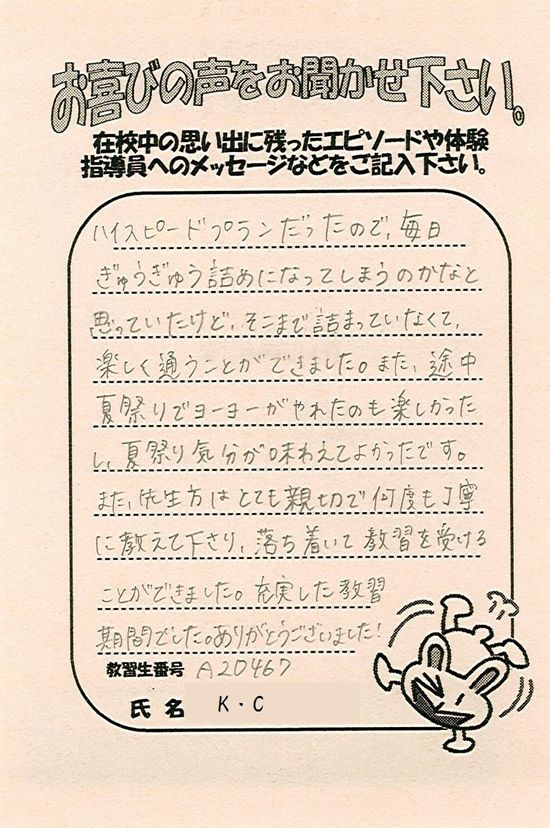 お喜びの声をお聞かせ下さい。
在校中の思い出に残ったエピソードや体験
指導員へのメッセージなどをご記入下さい。
ハイスピードプランだったので、毎日
ぎゅうぎゅう詰めになってしまうのかなと
思っていたけど、そこまで詰まっていなくて、
楽しく通うことができました。また、途中
夏祭りでヨーヨーがやれたのも楽しかった
し、夏祭り気分が味わえてよかったです。
また、先生方はとても親切で何度も丁寧
に教えて下さり、落ち着いて教習を受ける
ことができました。充実した教習
期間でした。ありがとうございました!
教習生番号 A20467
氏名 K・C